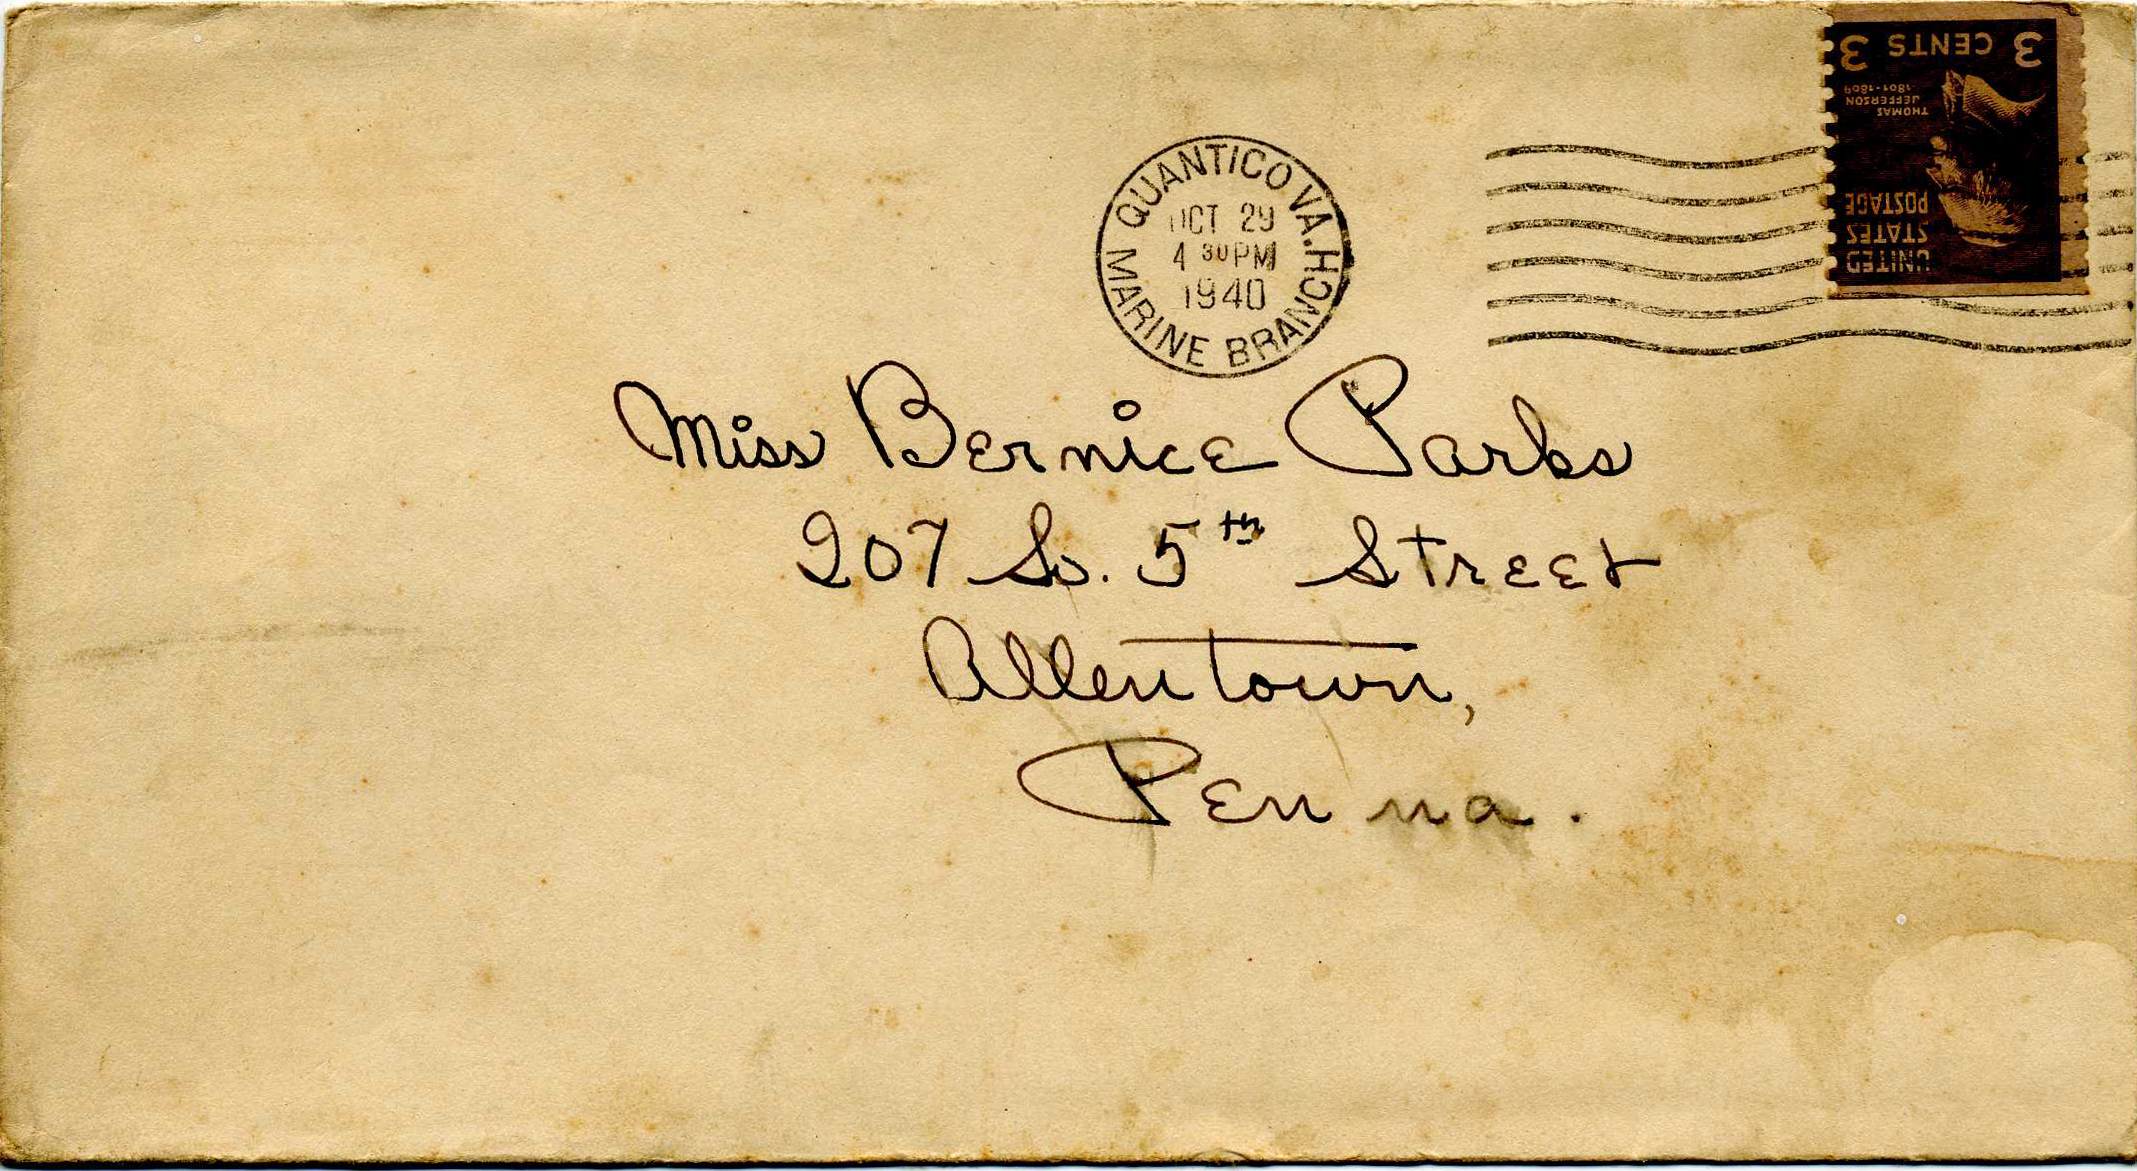 3 CENTS 3
THOMAS
JEFFERSON
1801-1809
UNITED
STATES
POSTAGE
QUANTICO VA.
MARINE BRANCH
OCT 29
4 30 PM
1940
Miss Bernice Parks
207 So. 5th Street
Allentown,
Penna.